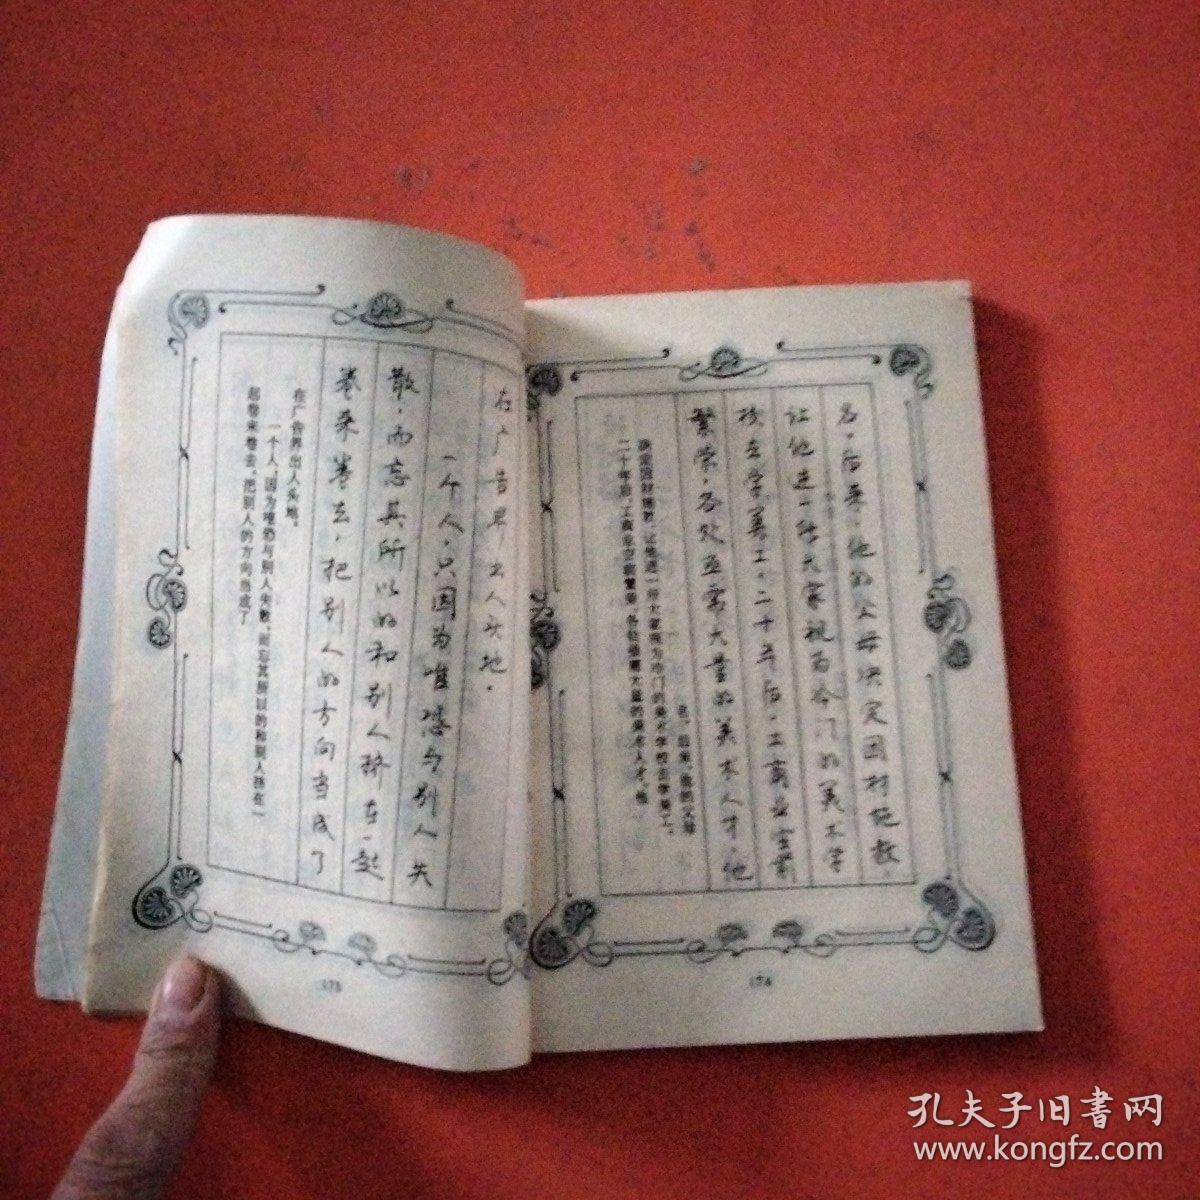 名。后来,他的父母决定因材施教,
让他进一所大家视为冷门的美术学
校去学美工。二十年后,工商业空前
繁荣,各处亟需大量的美术人才,他
名。后来,他的父母
决定因材施教,让他进一所大家视为冷门的美术学校去学美工。
二十年后,工商业空前繁荣,各处亟需大量的美术人才,他
174
在广告界出人头地。
一个人,只因为唯恐与别人失
散,而忘其所以的和别人挤在一起
卷来卷去,把别人的方向当成了
在广告界出人头地。
一个人,因为唯恐与别人失散,而忘其所以的和别人挤在一
起卷来卷去,把别人的方向当成了
175
孔夫子旧書网
www.kongfz.com